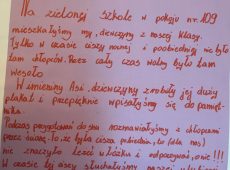 Na zielonej szkole w pokoju nr. 109
mieszkałyśmy my, dziewczyny z naszej klasy.
Tylko w czasie ciszy nocnej i poobiedniej nie było
tam chłopców. Przez cały czas wolny było tam
wesoło.
W imieniny Asi, dziewczyny zrobiły jej duży
plakat i przepięknie wpisałyśmy się do pamięt-
nika.
Podczas przygotowań do snu rozmawiałyśmy z chłopcami
przez ścianę. To, że była cisza poobiednia, to (dla nas)
nie znaczyło leżeć w łóżku i odpoczywać, o nie!!!
W czasie tej ciszy słuchałyśmy